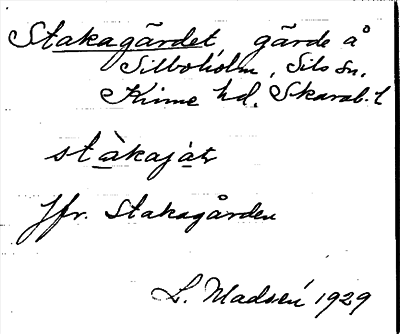 Stakagärdet, gärde å
Silboholm, Sils sn.
Kinne hd. Skarab. l
stàkajáṭ
Jfr. Stakagården
L. Madsén 1929